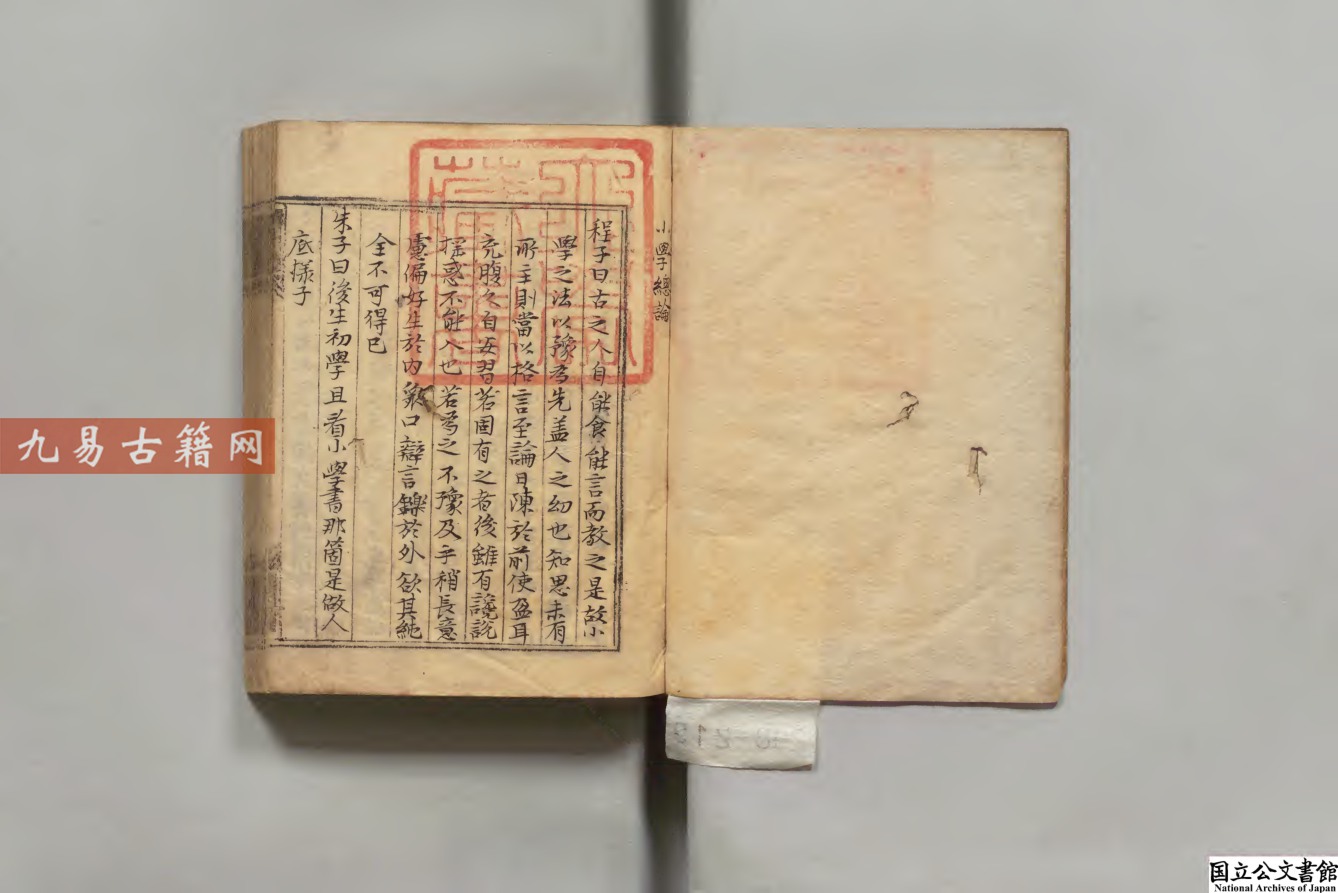 小學總論
程子曰古之人自能食能言而教之是故小
學之法以豫為先盖人之幼也知思未有
所主則當以格言至論日陳於前使盈耳
充腹久自安習若固有之者後雖有讒説
揺惑不能入也若為之不豫及乎稍長意
慮偏好生於内衆口辯言鑠於外欲其純
全不可得已
朱子曰後生初學且看小學書那箇是做人
底樣子
九易古籍网
国立公文書館
National Archives of Japan